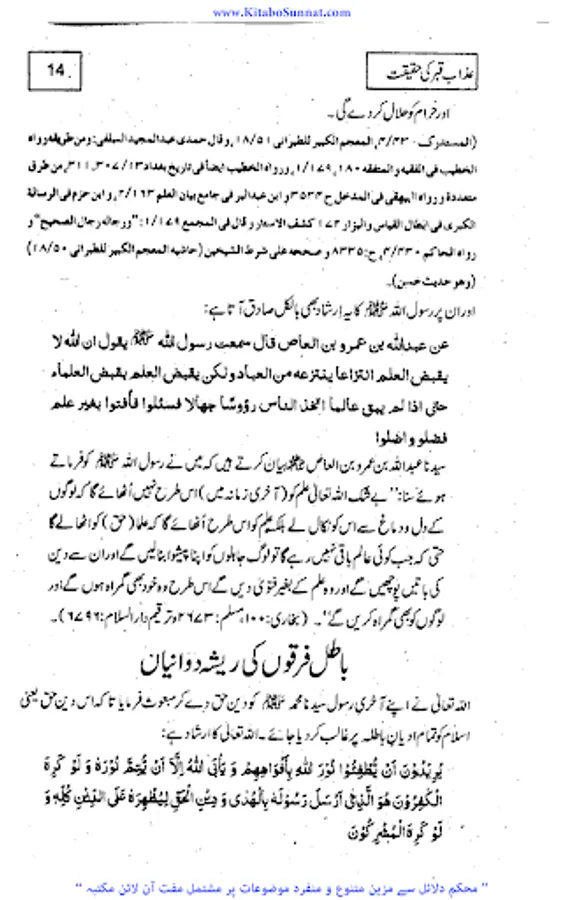 www.KitaboSunnat.com
عذاب قبر کی حقیقت
14
اور حرام کو حلال کر دے گی۔
(المستدرک ۴/۴۳۰، المعجم الکبیر للطبرانی ۱۸/۵۱، وقال حمدی عبدالمجید السلفی: ومن طریقہ رواہ
الخطیب فی الفقیہ والمتفقہ ۱۸۰، ۱/۱۷۹، ورواہ الخطیب ایضاً فی تاریخ بغداد ۱۳/۳۰۷، ۳۱۱، من طرق
متعددة ورواہ البیہقی فی المدخل ح ۳۵۳۴ وابن عبدالبر فی جامع بیان العلم ۲/۱۶۳، وابن حزم فی الرسالة
الکبری فی ابطال القیاس والبزار ۱۷۲ کشف الاستار وقال فی المجمع ۱/۱۷۹: "ورجالہ رجال الصحیح" و
رواہ الحاکم ۴/۴۳۰، ح: ۸۳۳۵ وصححہ علی شرط الشیخین (حاشیہ المعجم الکبیر للطبرانی ۱۸/۵۰)
(وهو حدیث حسن)۔
اور ان پر رسول اللہ ﷺ کا یہ ارشاد بھی بالکل صادق آتا ہے:
عن عبدالله بن عمرو بن العاص قال سمعت رسول الله ﷺ یقول ان الله لا
یقبض العلم انتزاعا ینتزعه من العباد ولکن یقبض العلم بقبض العلماء
حتی اذا لم یبق عالماً اتخذ الناس رؤوسًا جهالا فسئلوا فأفتوا بغیر علم
فضلوا واضلوا
سیدنا عبداللہ بن عمرو بن العاص بیان کرتے ہیں کہ میں نے رسول اللہ ﷺ کو فرماتے
ہوئے سنا: "بے شک اللہ تعالیٰ علم کو (آخری زمانہ میں) اس طرح نہیں اُٹھائے گا کہ لوگوں
کے دل و دماغ سے اس کو نکال لے بلکہ علم کو اس طرح اُٹھائے گا کہ علما (حق) کو اٹھا لے گا
حتی کہ جب کوئی عالم باقی نہیں رہے گا تو لوگ جاہلوں کو اپنا پیشوا بنا لیں گے اور ان سے دین
کی باتیں پوچھیں گے اور وہ علم کے بغیر فتویٰ دیں گے اس طرح وہ خود بھی گمراہ ہوں گے اور
لوگوں کو بھی گمراہ کریں گے"۔ (بخاری: ۱۰۰، مسلم: ۲۶۷۳ و ترقیم دار السلام: ۶۷۹۶)۔
باطل فرقوں کی ریشہ دوانیاں
اللہ تعالیٰ نے اپنے آخری رسول سیدنا محمد ﷺ کو دین حق دے کر مبعوث فرمایا تا کہ اس دین حق یعنی
اسلام کو تمام ادیان باطلہ پر غالب کر دیا جائے۔ اللہ تعالیٰ کا ارشاد ہے:
یُرِیْدُوْنَ اَنْ یُّطْفِئُوْا نُوْرَ اللهِ بِاَفْوَاهِهِمْ وَ یَاْبَی اللهُ اِلَّا اَنْ یُّتِمَّ نُوْرَهٗ وَ لَوْ کَرِهَ
الْکٰفِرُوْنَ هُوَ الَّذِیْ اَرْسَلَ رَسُوْلَهٗ بِالْهُدٰی وَ دِیْنِ الْحَقِّ لِیُظْهِرَهٗ عَلَی الدِّیْنِ کُلِّهٖ وَ
لَوْ کَرِهَ الْمُشْرِکُوْنَ
" محکم دلائل سے مزین متنوع و منفرد موضوعات پر مشتمل مفت آن لائن مکتبہ "